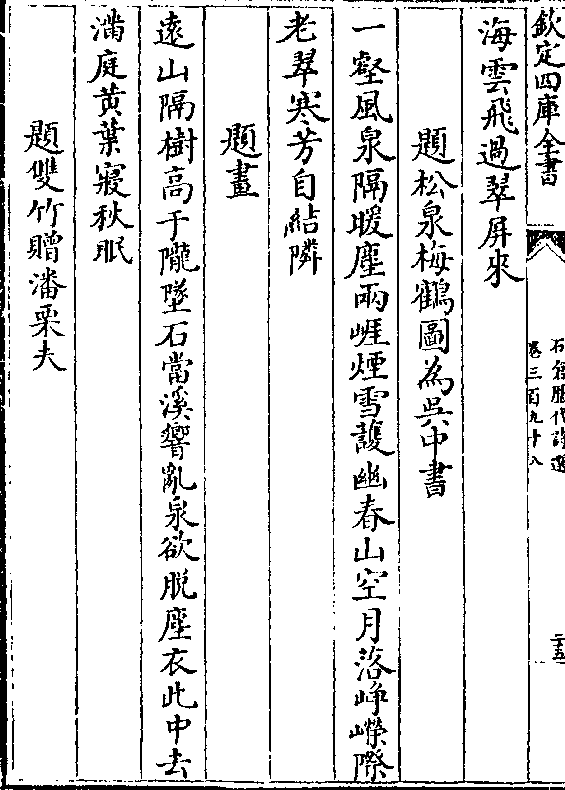 欽定四庫全書
石倉歷代詩選
卷三百九十八
二五
海雲飛過翠屏來
題松泉梅鶴圖為吳中書
一壑風泉隔暖塵兩崕煙雪護幽春山空月落崢嶸際
老翠寒芳自結隣
題畫
遠山隔樹高于隴墜石當溪響亂泉欲脱塵衣此中去
滿庭黄葉寢秋眠
題雙竹贈潘栗夫